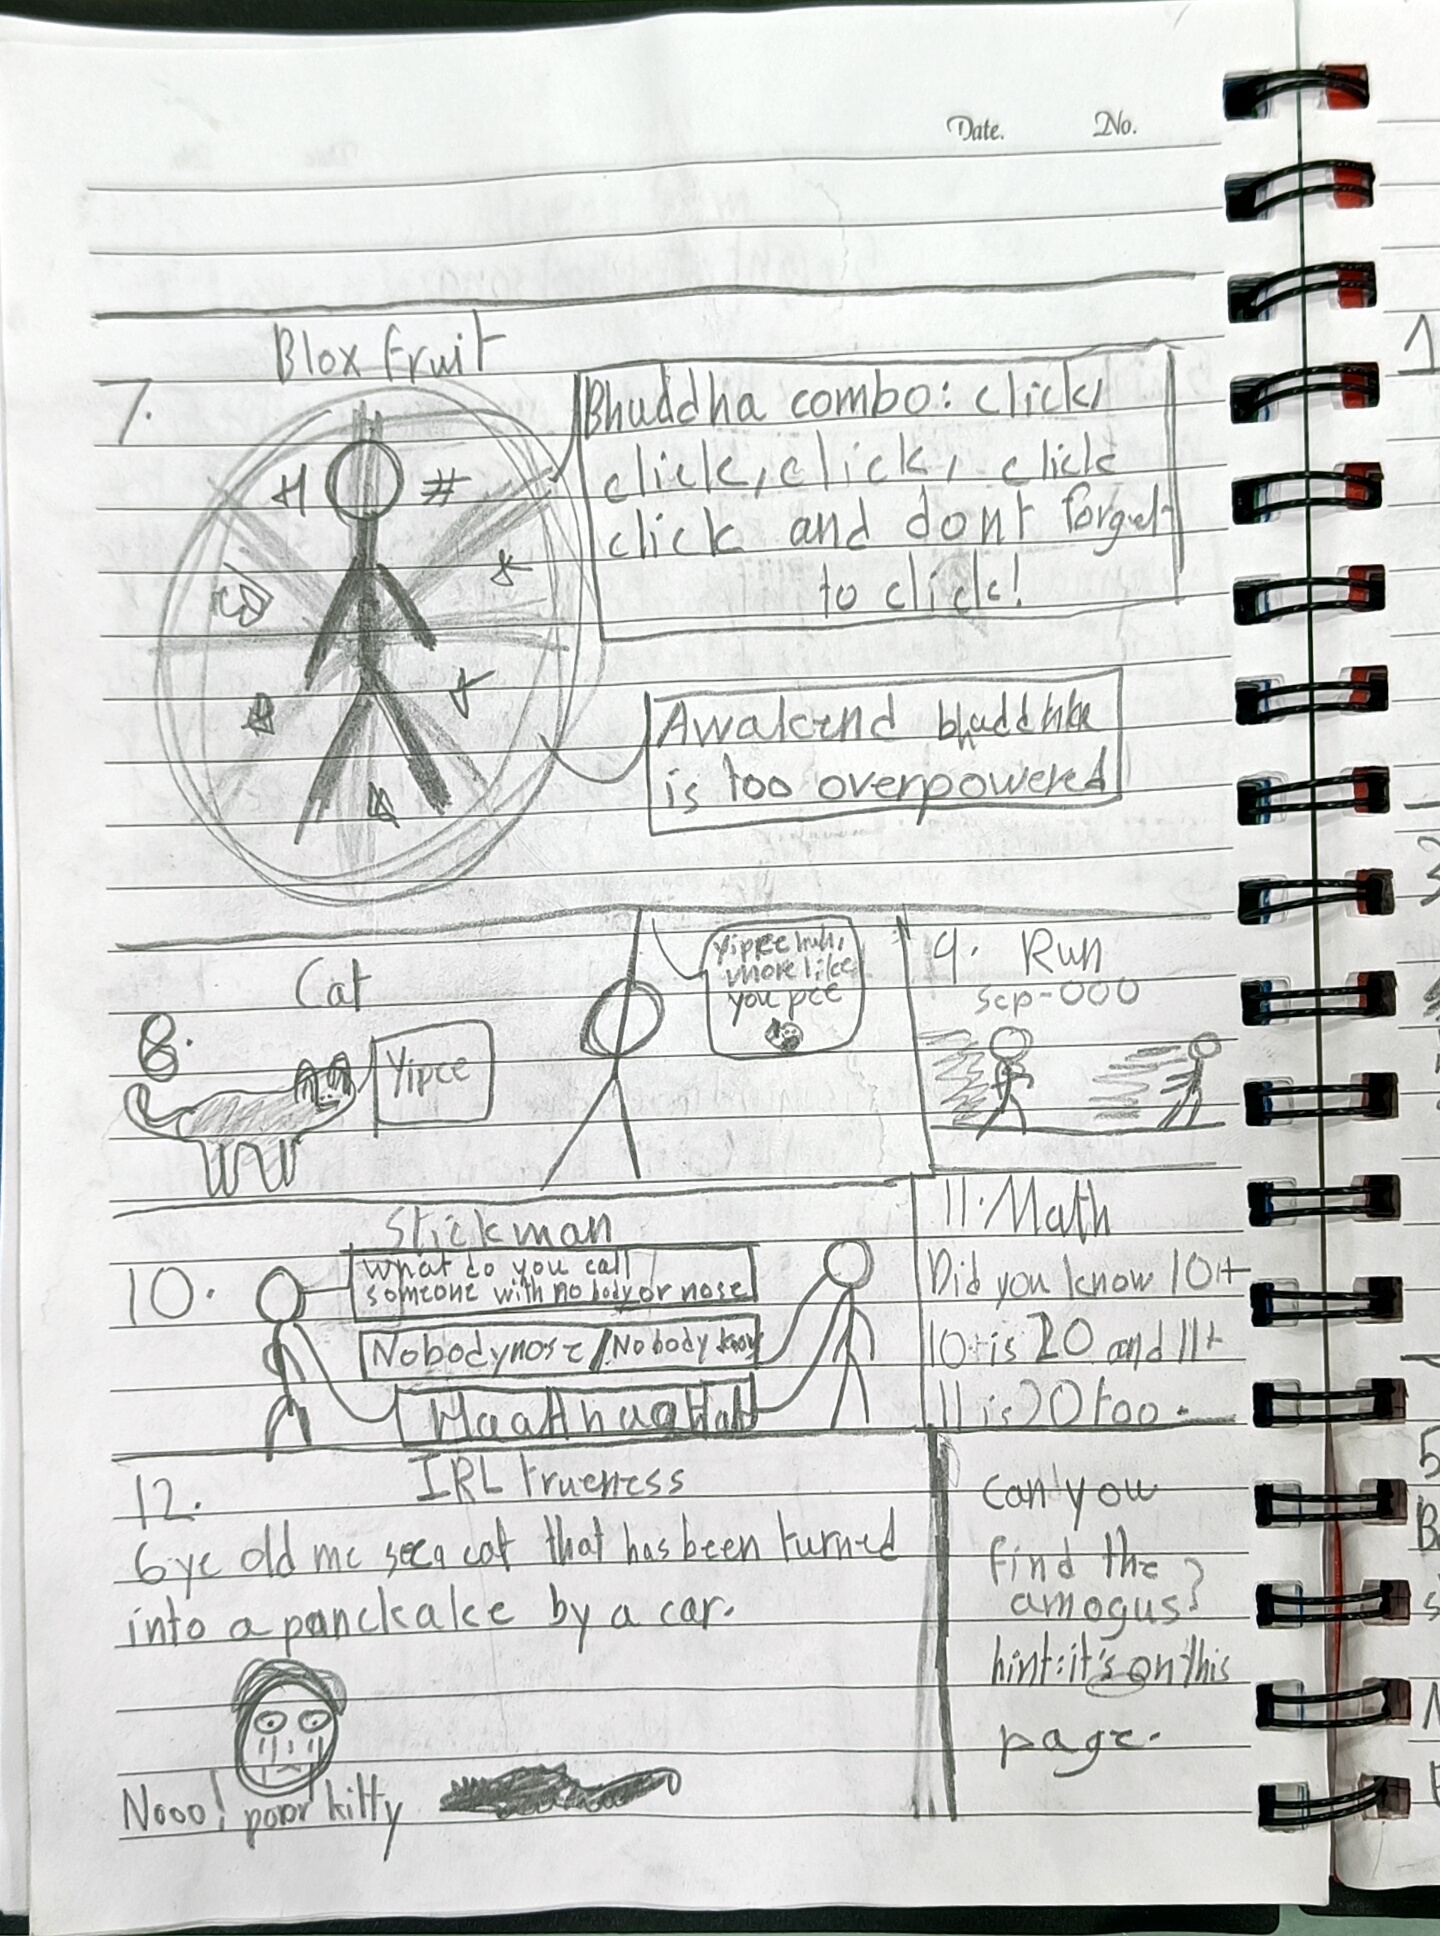 Date. No.
Blox fruit
7.
Bhuddha combo: click,
click, click, click
click and dont forget
to click!
Awakend bhuddhha
is too overpowered
Cat
8.
Yipee
Yippee huh,
more like
you pee
9. Run
scp-000
Stickman
10.
What do you call
someone with no body or nose
Nobodynose/Nobody know
11. Math
Did you know 10+
10 is 20 and 11+
11 is 20 too.
12. IRL trueness
6 ye old me see a cat that has been turned
into a panckake by a car.
Nooo! poor kitty
can you
find the
amogus?
hint: it's on this
page.